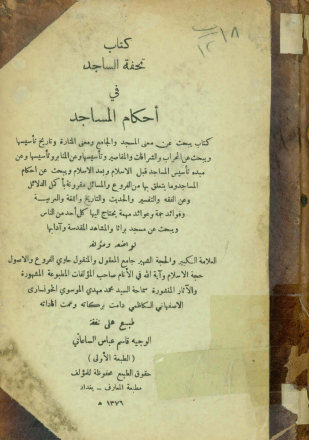 كتاب
تحفة الساجد
في
أحكام المساجد
كتاب يبحث عن معنى المسجد والجامع ومعنى المنارة وتاريخ تأسيسها
ويبحث عن المحراب والشرافات والمقاصير وتأسيسها وعن المنابر وتأسيسها وعن
مبدء تأسيس المساجد قبل الاسلام وبعد الاسلام ويبحث عن احكام
المساجد وما يتعلق بها من الفروع والمسائل مقرونة بأكمل الدلائل
وعن الفقه والتفسير والحديث والتاريخ واللغة والعربيسة
وفوائد جمة وعوائد مهمة يحتاج اليها كل أحد من الناس
ويبحث عن مسجد براثا والمشاهد المقدسة وآدابها
لواضعه ومؤلفه
العلامة الكبير والحجة الشهير جامع المعقول والمنقول حاوي الفروع والاصول
حجة الاسلام وآية الله في الأنام صاحب المؤلفات المطبوعة المشهورة
والآثار المنشورة سماحة السيد محمد مهدي الموسوي الخونساري
الاصفهاني الكاظمي دامت بركاته وعمت افاداته
طبع على نفقة
الوجيه قاسم عباس الساعاتي
( الطبعة الأولى )
حقوق الطبع محفوظة للمؤلف
مطبعة المعارف ــ بغداد
١٣٧٦ هـ